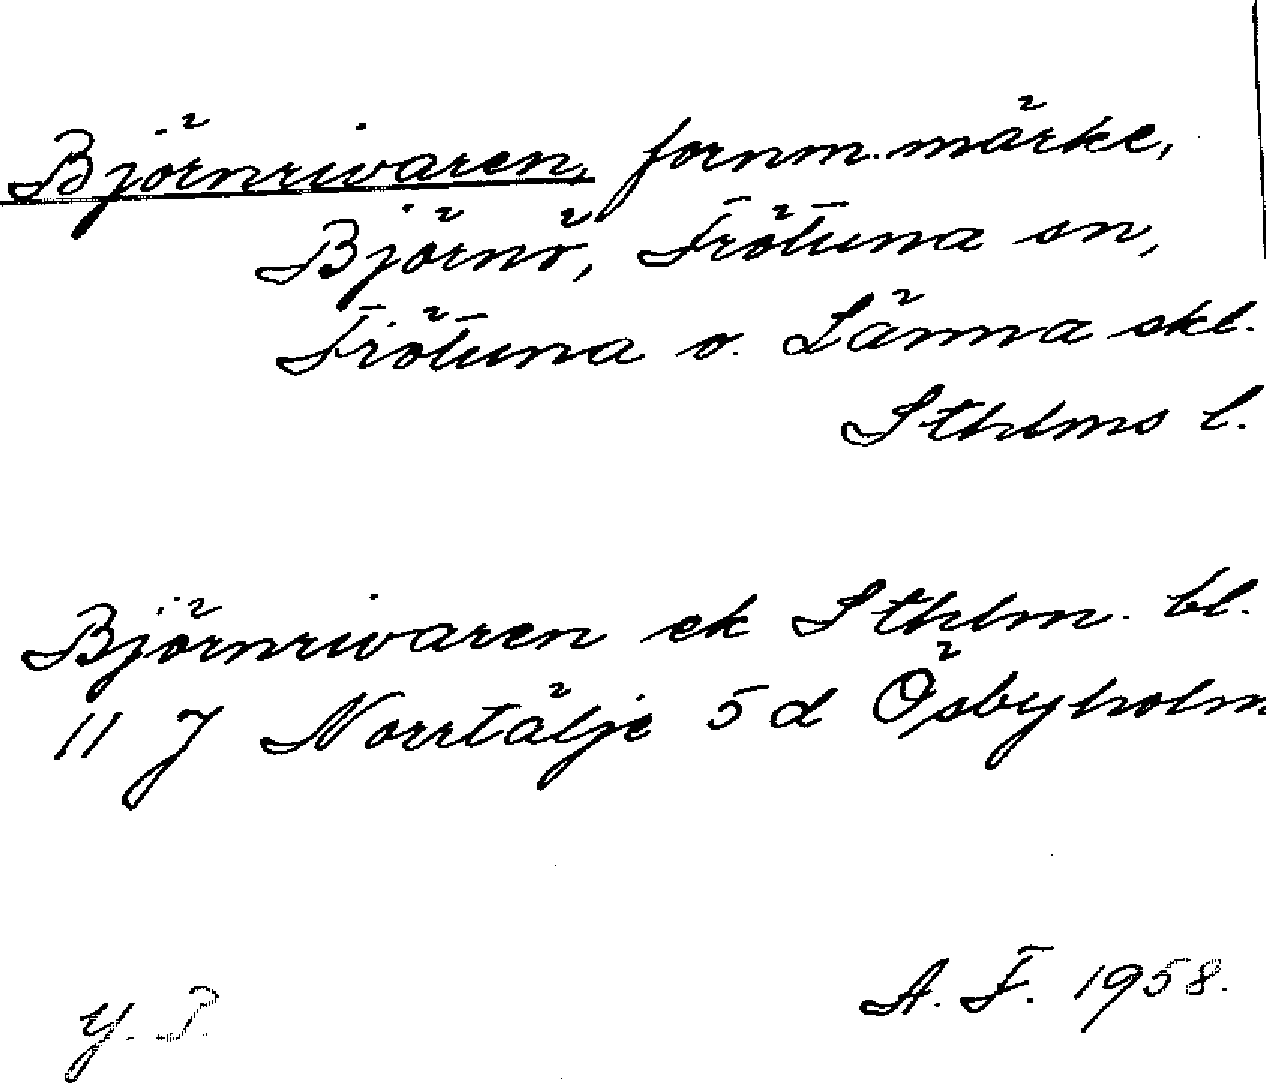 Björnrivaren, fornm.märke,
Björnö, Frötuna sn,
Frötuna o. Länna skl.
Sthlms l.
Björnrivaren ek Sthlm. bl.
11 J Norrtälje 5 d Ösbyholm
Y. P.
A. F. 1958.